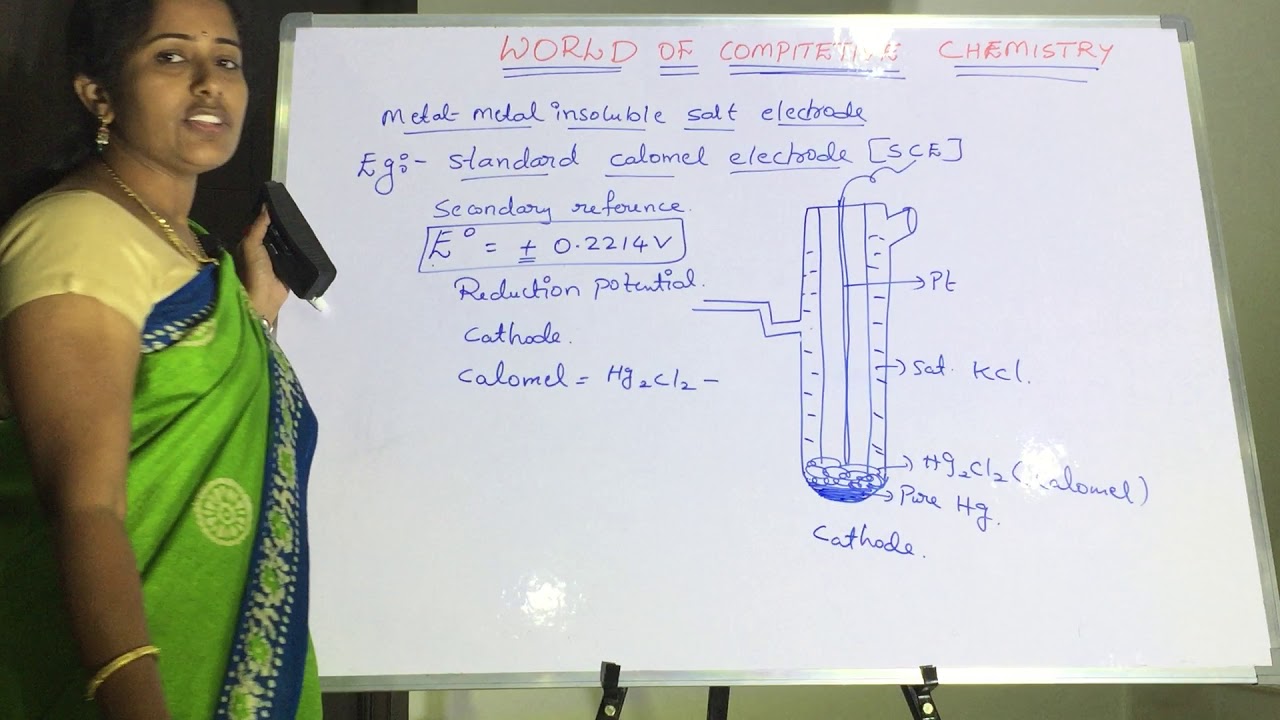 WORLD OF COMPITETIVE CHEMISTRY
Metal-metal insoluble salt electrode
Eg:- standard calomel electrode [SCE]
Secondary reference.
E° = ± 0.2214V
Reduction potential.
Cathode.
Calomel = Hg₂Cl₂ -
Pt
Sat. KCl.
Hg₂Cl₂ (calomel)
Pure Hg.
Cathode.